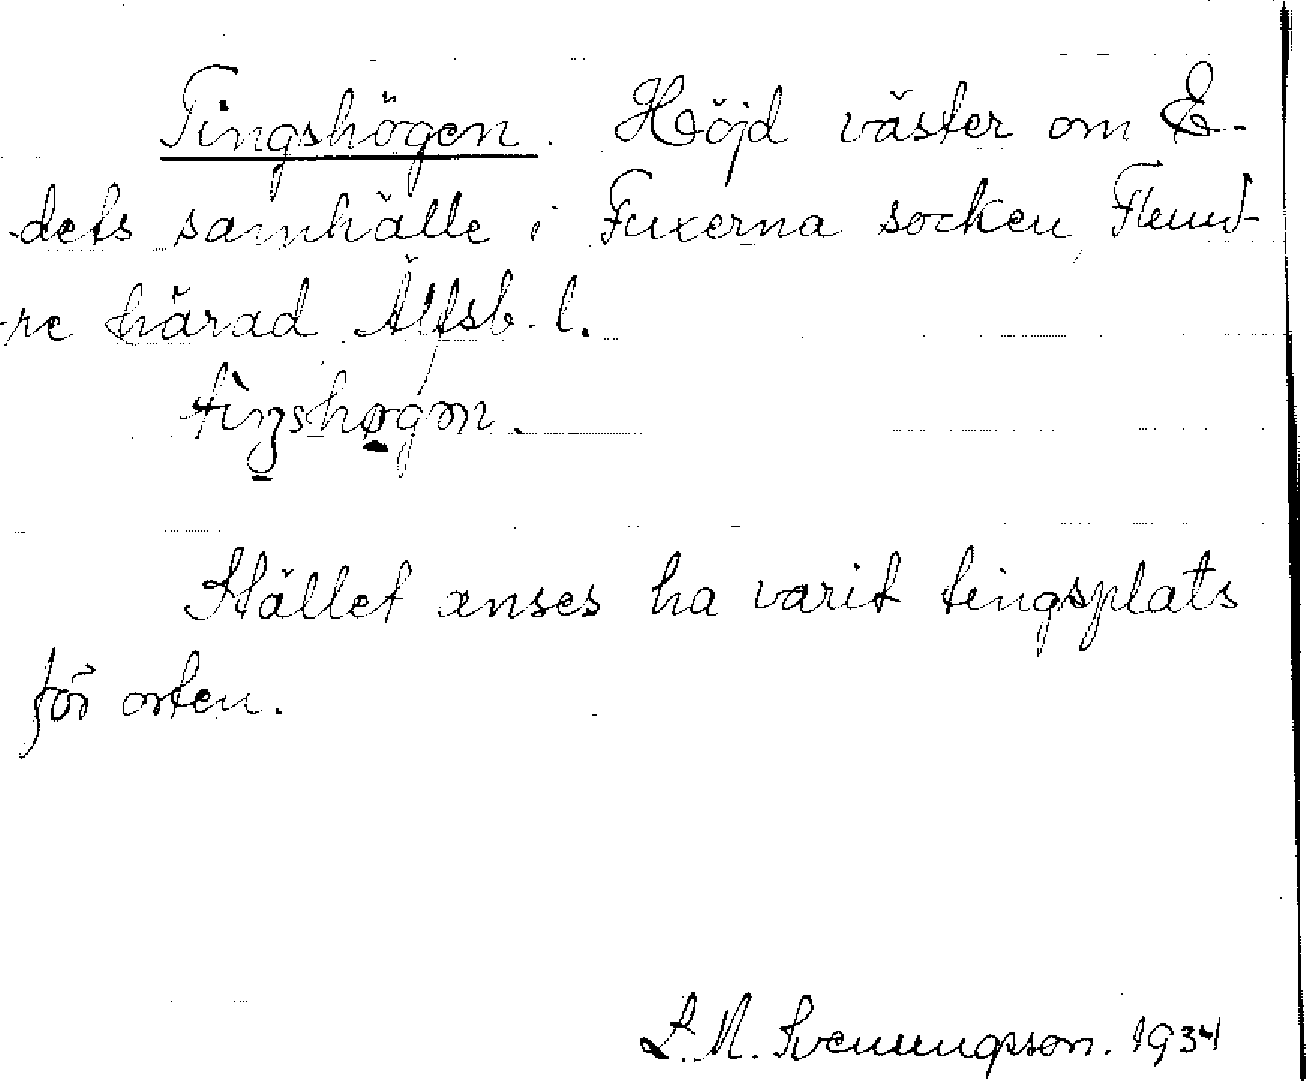 Tingshögen. Höjd väster om E-
dets samhälle i Fuxerna socken, Flund-
re härad Älfsb. l.
tìŋshøgən.
Stället anses ha varit tingsplats
för orten.
L. M. Svenungsson. 1934